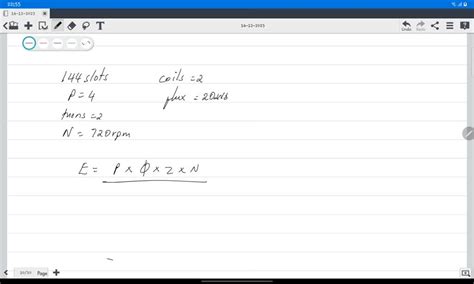 14-12-2023
14-12-2023
Undo
Redo
144 slots coils = 2
P = 4 flux = 20mwb
turns = 2
N = 720rpm
E = P x ϕ x Z x N
Page